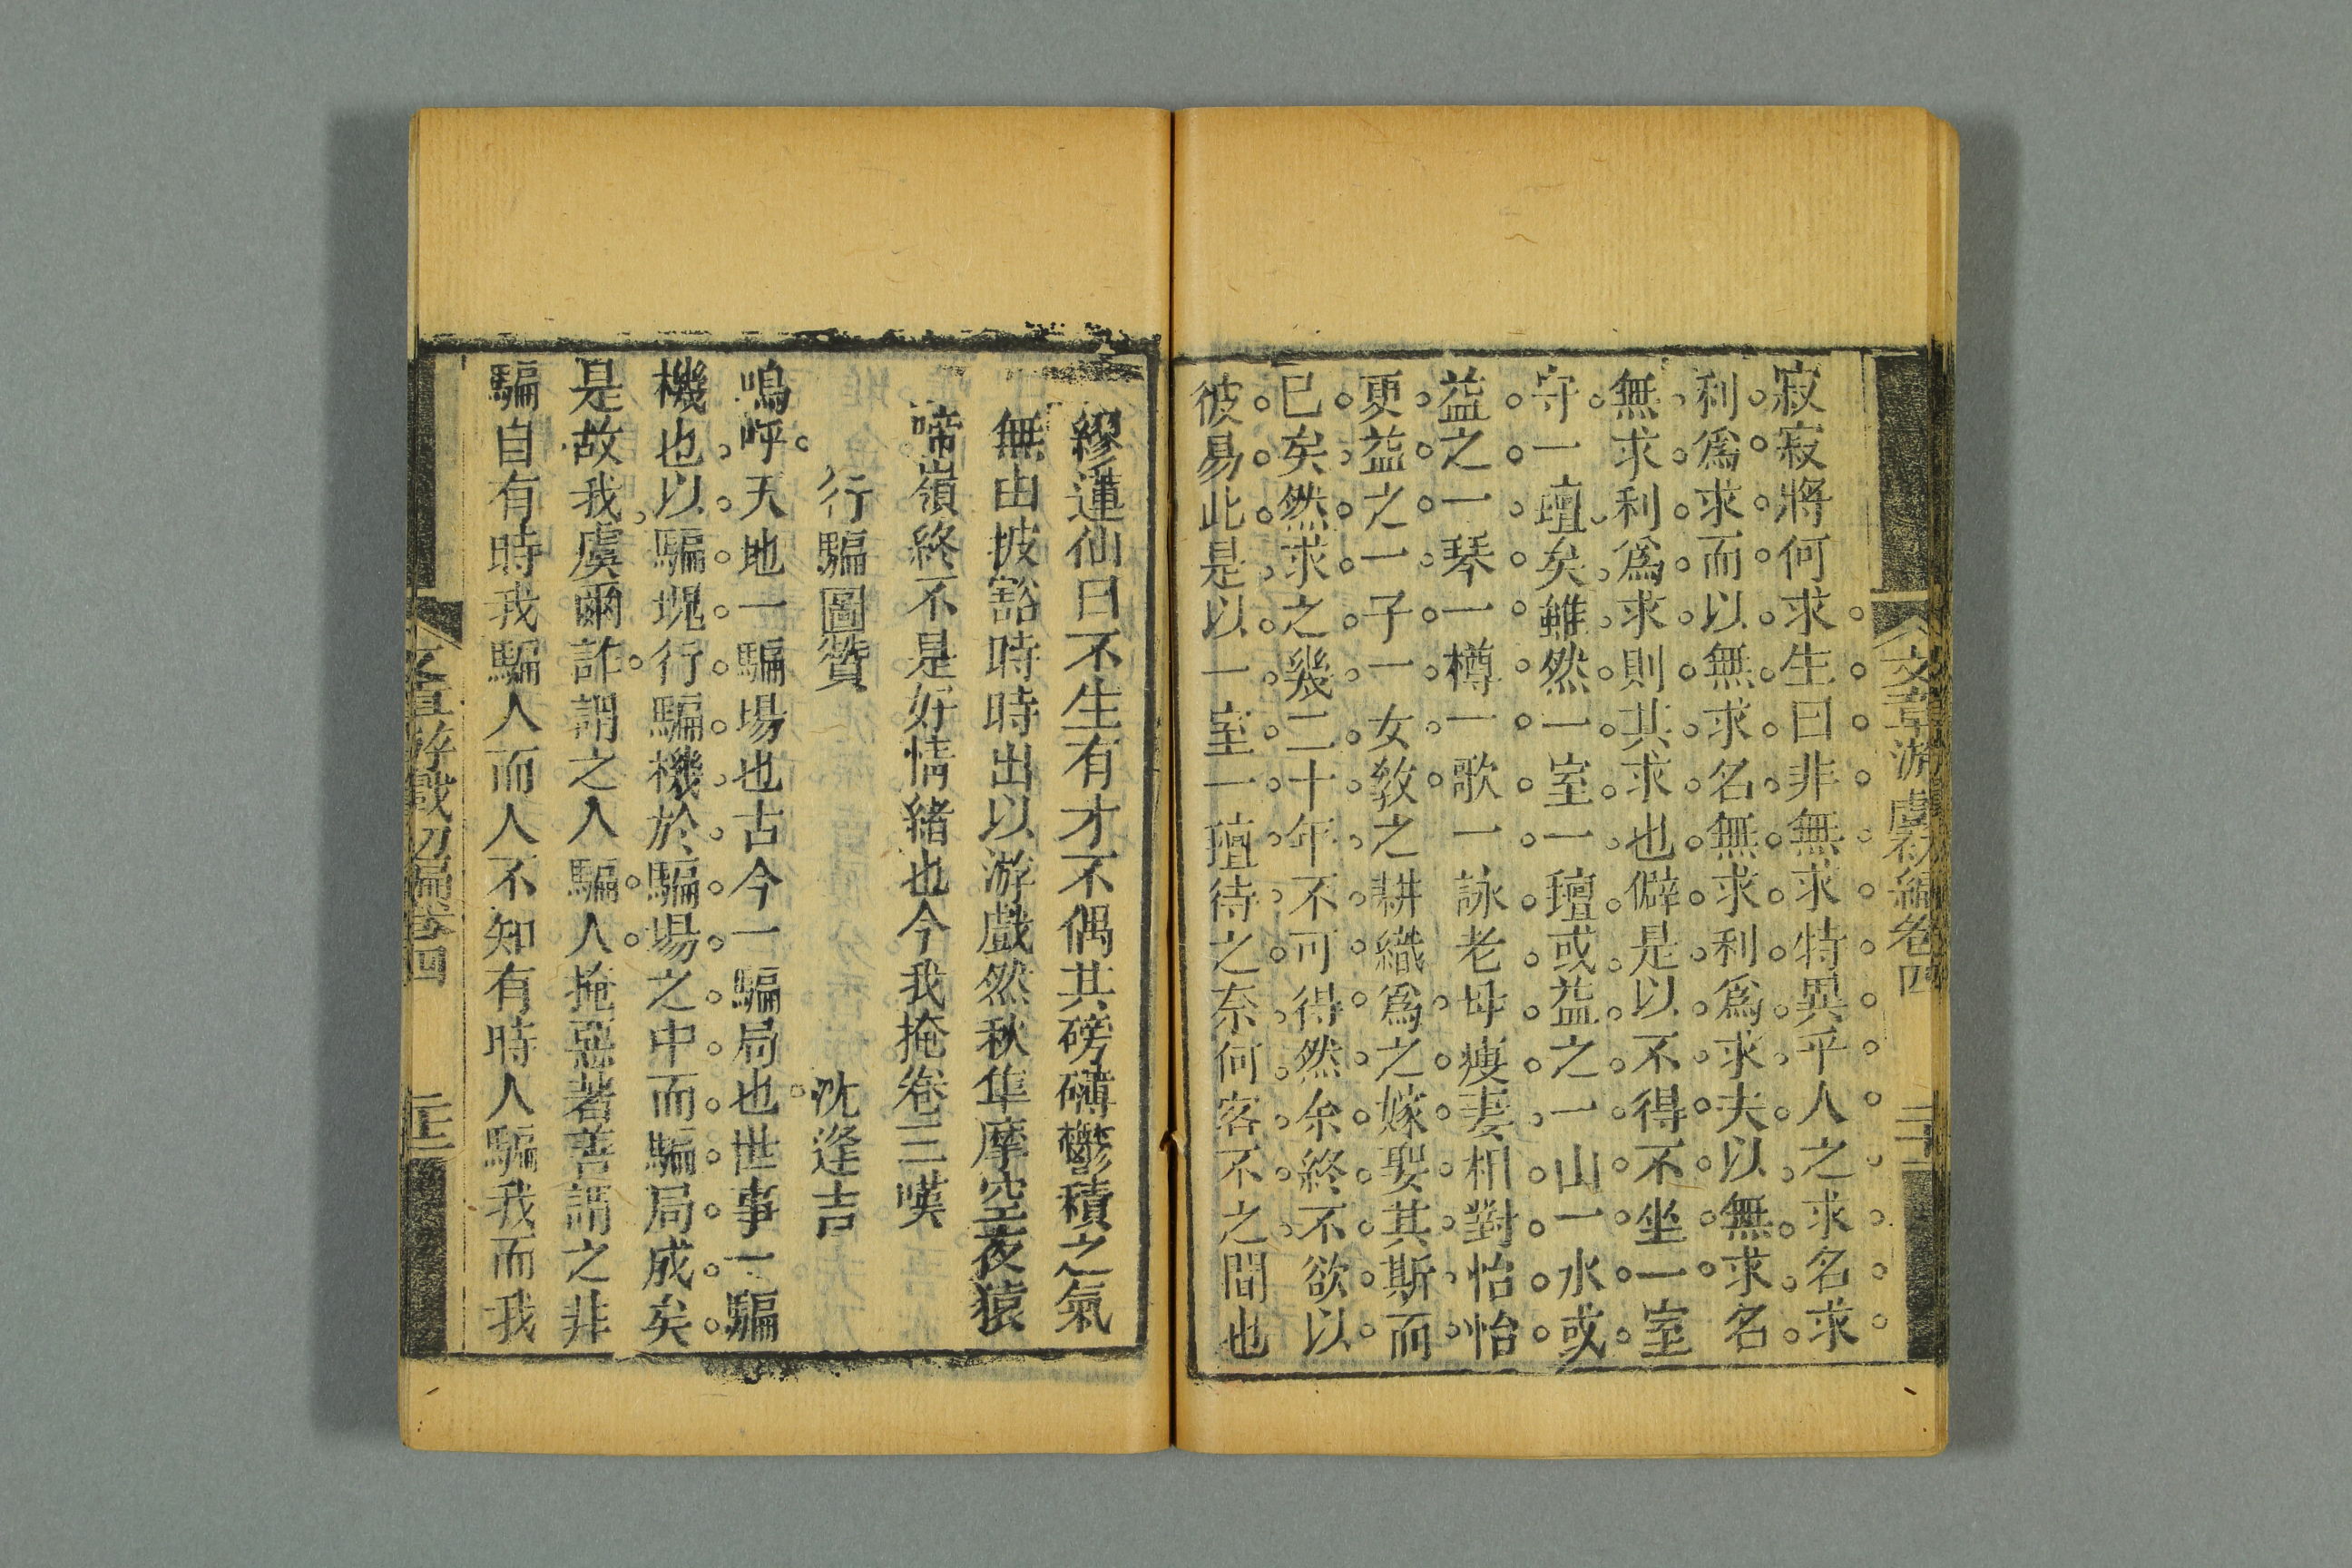 文章游戲初編卷四
二十二
寂寂將何求生曰非無求特異乎人之求名求
利爲求而以無求名無求利爲求夫以無求名
無求利爲求則其求也僻是以不得不坐一室
守一壇矣雖然一室一壇或益之一山一水或
益之一琴一樽一歌一詠老母瘦妻相對怡怡
更益之一子一女敎之耕織爲之嫁娶其斯而
已矣然求之幾二十年不可得然余終不欲以
彼易此是以一室一壇待之奈何客不之間也
繆蓮仙曰不生有才不偶其磅礴鬱積之氣
無由披豁時時出以游戲然秋隼摩空夜猿
啼嶺終不是好情緖也今我掩卷三嘆
行騙圖贊 沈逢吉
嗚呼天地一騙場也古今一騙局也世事一騙
機也以騙塊行騙機於騙場之中而騙局成矣
是故我虞爾詐謂之入騙人掩惡著善謂之非
騙自有時我騙人而人不知有時人騙我而我
文章游戲初編卷四